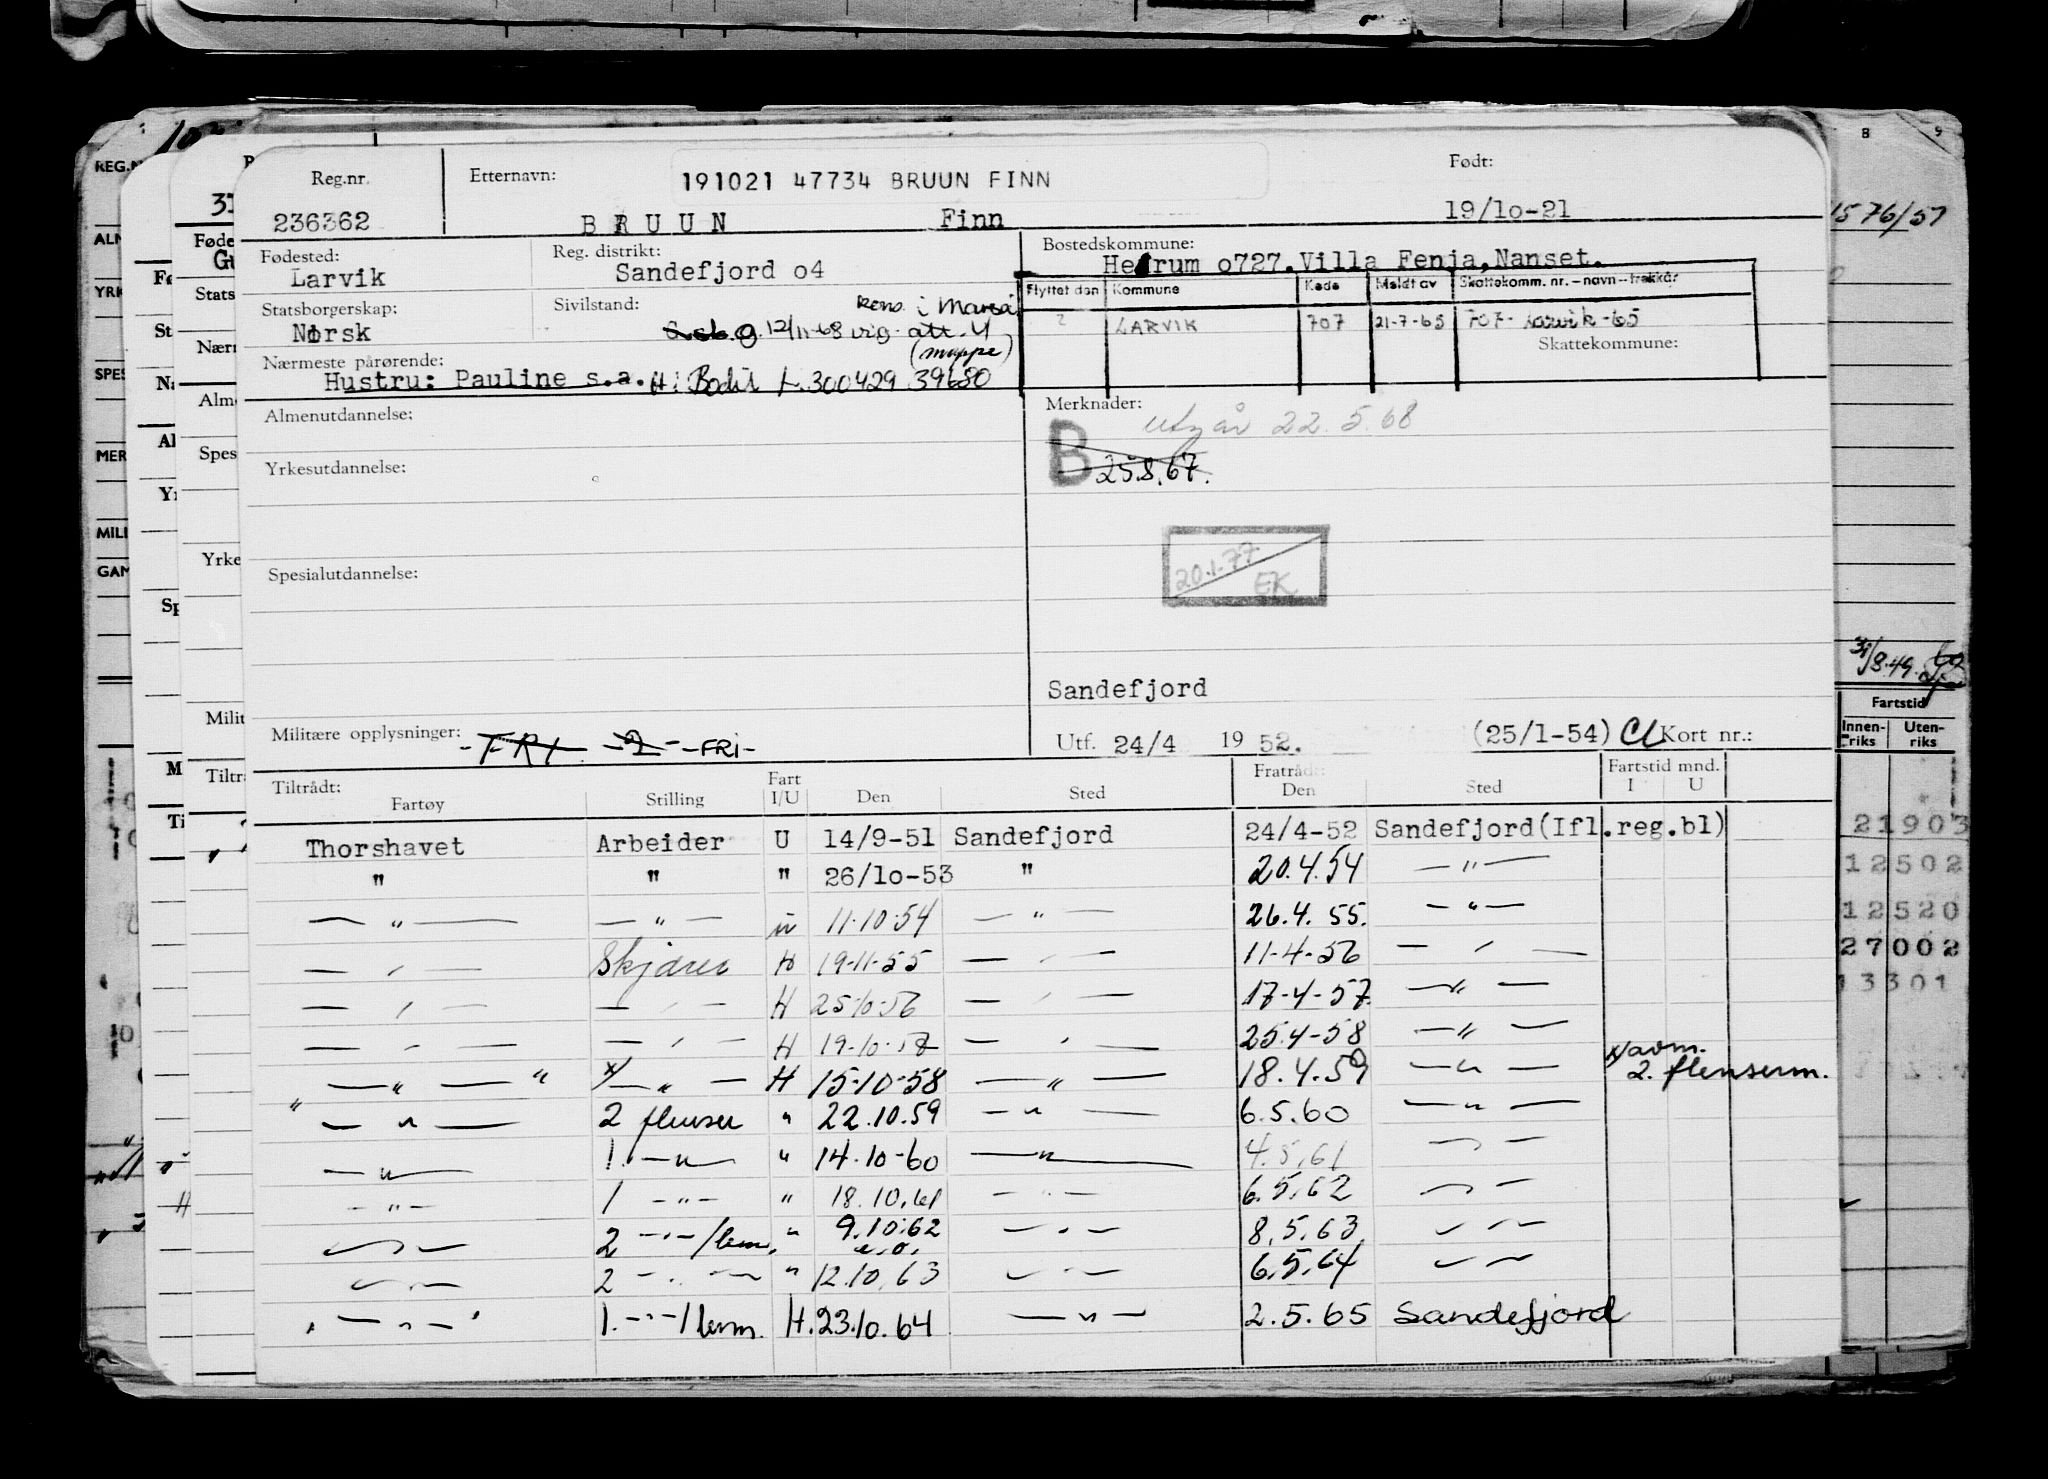 Reg.nr. Etternavn: 191021 47734 BRUUN FINN Født:
236362 BRUUN Finn 19/1o-21
Fødested: Reg. distrikt: Bostedskommune:
Larvik Sandefjord o4 Hedrum o727.Villa Fenja,Nanset.
Flyttet den Kommune Kode Meldt av Skattekomm. nr. - navn - trekkår
Statsborgerskap: Sivilstand:
? LARVIK 707 21-7-65 707- Larvik -65
Norsk 12/11-68 vig. att. 4
(mappe) Skattekomune:
Nærmeste pårørende:
Hustru: Pauline s.a. H: Bodil f. 300429 39680
Almenutdannelse: Merknader:
utgår 22.5.68
B 25.8.67.
Yrkesutdannelse:
20.1.77
EK
Spesialutdannelse:
Sandefjord
Militære opplysninger: -FRI -2- -FRI-
Utf. 24/4 1952. (25/1-54) Cl Kort nr.:
Tiltrådt: Fart Fratrådt: Fartstid mnd.
Fartøy Stilling I/U Den Sted Den Sted I U
Thorshavet Arbeider U 14/9-51 Sandefjord 24/4-52 Sandefjord(Ifl.reg.bl)
" " " 26/1o-53 " 20.4.54 — " —
— " — — " — u 11.10.54 — " — 26.4.55. — " —
— " — Skjærer H 19-11-55 — " — 11-4-56 — " —
— " — — " — H 25-10-56 — " — 17-4-57 — " —
— " — — " — H 19-10-57 — " — 25.4-58 — " —
— " — " x/ — " — H 15-10-58 — " — 18.4.59 — " — x/ avm. 2. flenserm.
" — " — 2 flenser " 22.10.59 — " — 6.5.60 — " —
— " — 1. — " — " 14.10-60 — " — 4.5.61 — " —
— " — 1 — " — " 18.10.61 — " — 6.5.62 — " —
— " — 2 — " — /lem. " 9.10.62 — " — 8.5.63 — " —
— " — 2 — " — " 12.10.63 — " — 6.5.64 — " —
— " — 1. — " — /lem. H. 23.10.64 — " — 2.5.65 Sandefjord
REG.N
8 9
1576/57
31/8.49.
Fartstid
Innen-riks Uten-riks
21903
12502
12520
27002
13301